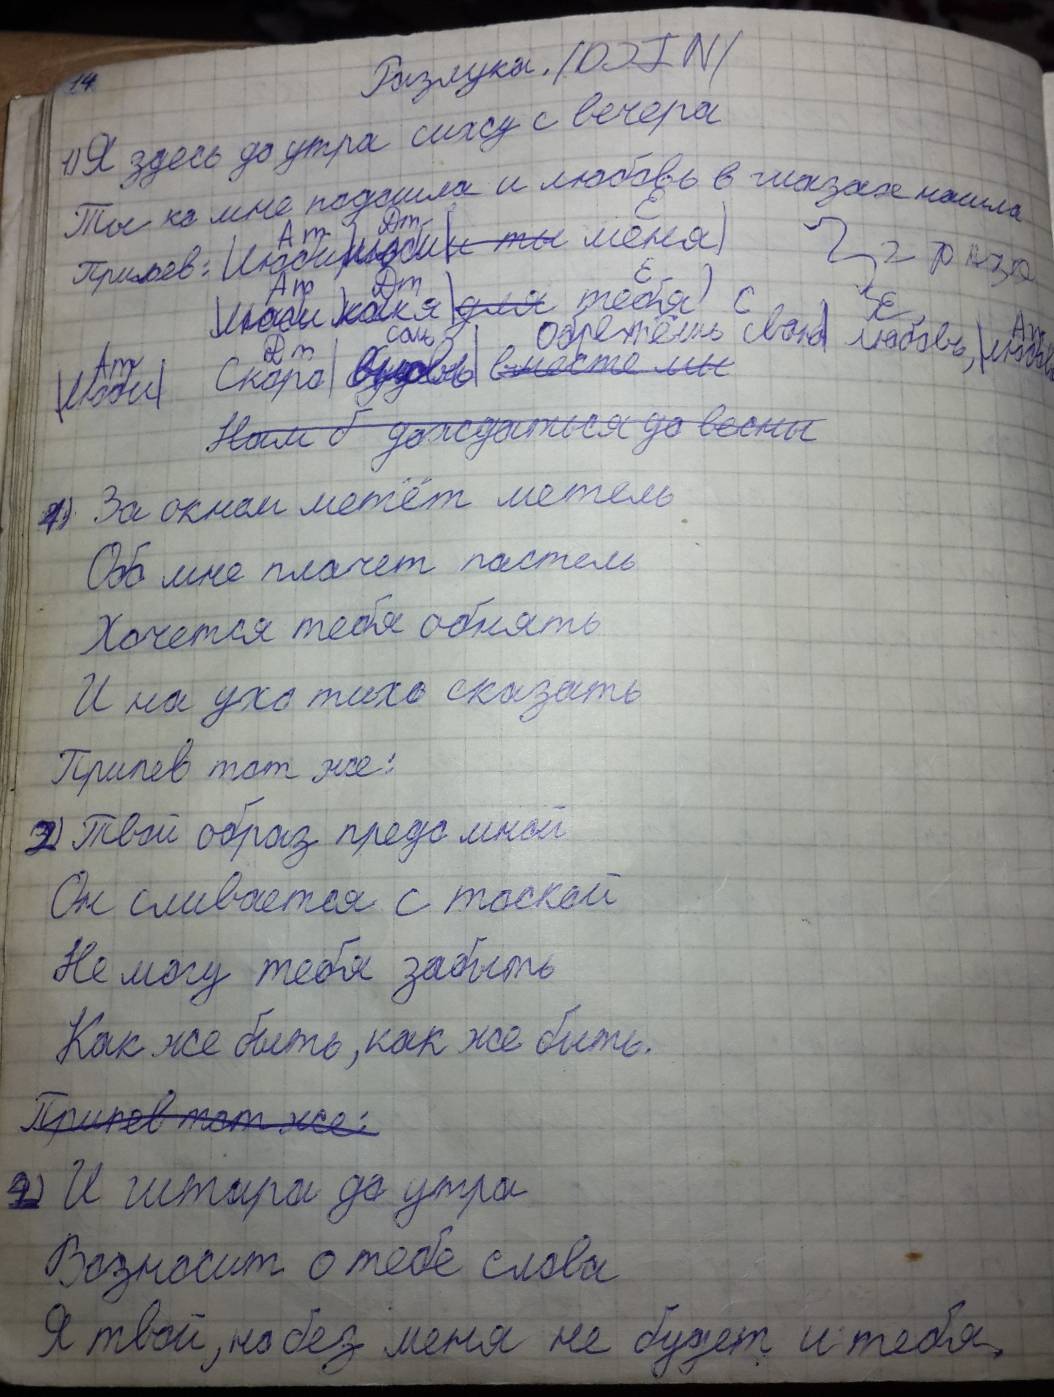 14
Разлука. /DJIN/
1) Я здесь до утра сижу с вечера
Ты ко мне подошла и любовь в глазах нашла
Am Dm E
Припев: |Люби|люби|и ты меня| 2 раза
Am Dm E
|Люби|как я|для тебя) C E
Am Dm соль обретёшь свою| любовь, Am
|Люби| Скоро| вновь| вместе мы |любовь
Нам б дождаться до весны
1) За окном метёт метель
Обо мне плачет пастель
Хочется тебя обнять
И на ухо тихо сказать
Припев тот же:
2) Твой образ предо мной
Он сливается с тоской
Не могу тебя забыть
Как же быть, как же быть.
Припев тот же:
2) И гитара до утра
Возносит о тебе слова
Я твой, но без меня не будет и тебя.